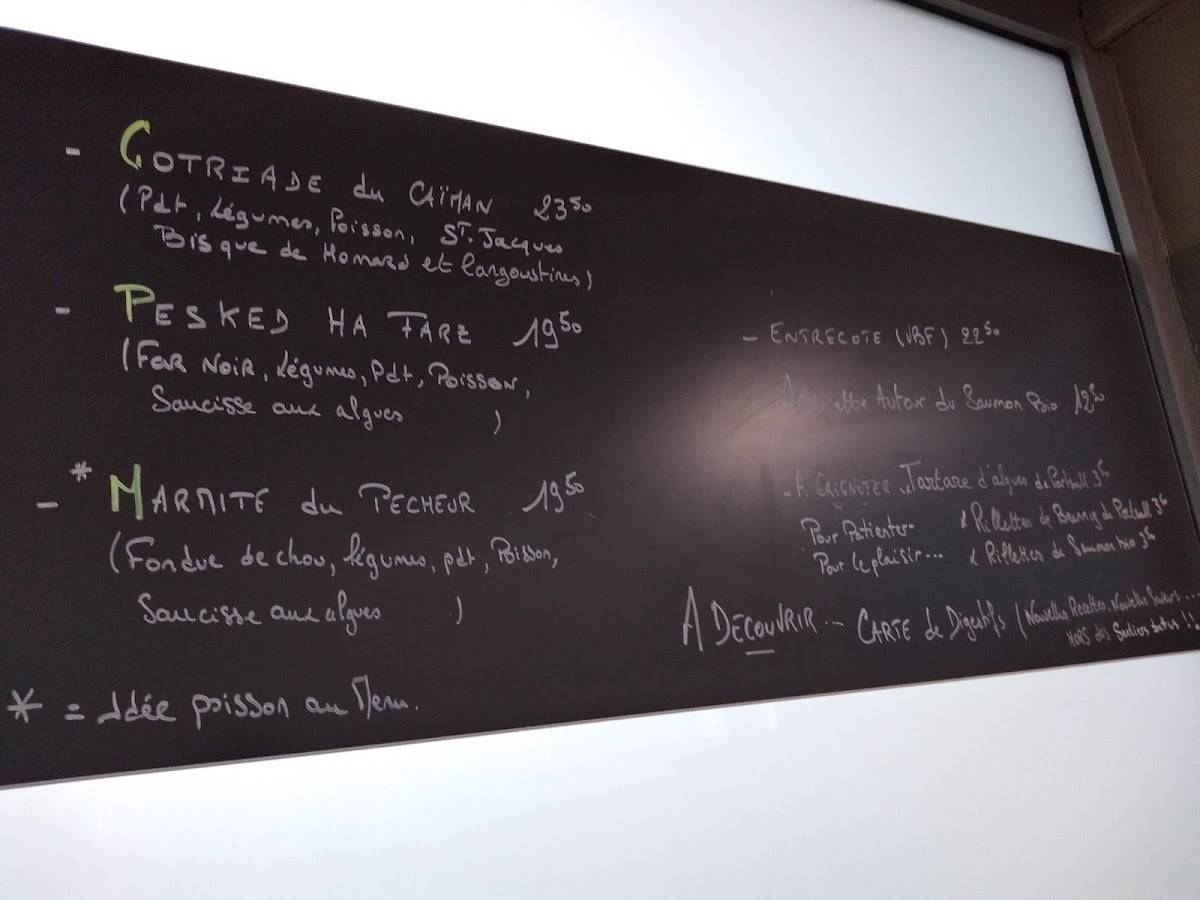 - COTRIADE du CAÏMAN 23⁵⁰
(Pdt, Légumes, Poisson, Sᵀ. Jacques
Bisque de Homard et langoustines)
- PESKED HA FARZ 19⁵⁰
(FAR NOIR, Légumes, Pdt, POISSON,
Saucisse aux algues )
* - MARMITE du PECHEUR 19⁵⁰
(Fondue de chou, légumes, pdt, Poisson,
Saucisse aux algues )
* = Idée poisson au Menu.
- ENTRECOTE (VBF) 22⁵⁰
Autour du Saumon Bio
- A GRIGNOTER .. Tartare d'algues de Portsall 3⁵⁰
Pour Patienter Rillettes de de Portsall 3⁵⁰
Pour le plaisir... Rillettes de Saumon bio 3⁵⁰
A DECOUVRIR ... CARTE de Digestifs (Nouvelles Recettes, Nouvelles Saveurs ...
HORS des Sentiers battus !!